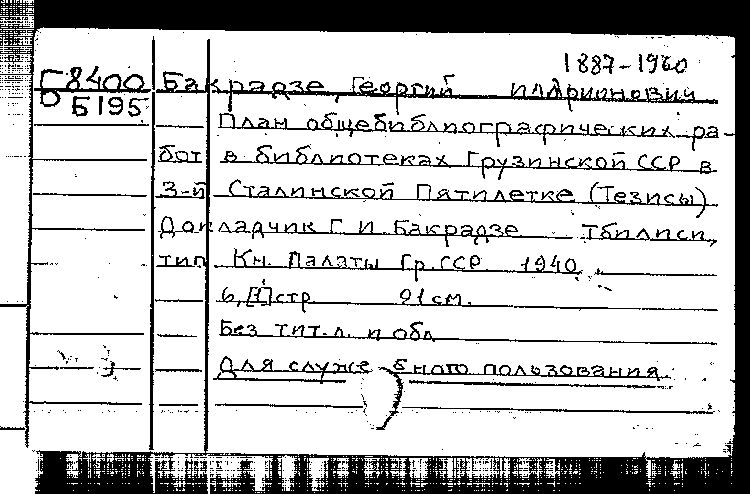 1887-1960
Г8400 Бакрадзе, Георгий Илларионович
Б195
План общебиблиографических ра-
бот в библиотеках Грузинской ССР в
3-й Сталинской Пятилетке (Тезисы)
Докладчик Г. И. Бакрадзе Тбилиси,
тип Кн. Палаты Гр. ССР 1940
6, [1] стр 21 см.
Без тит. л. и обл
Для служебного пользования.